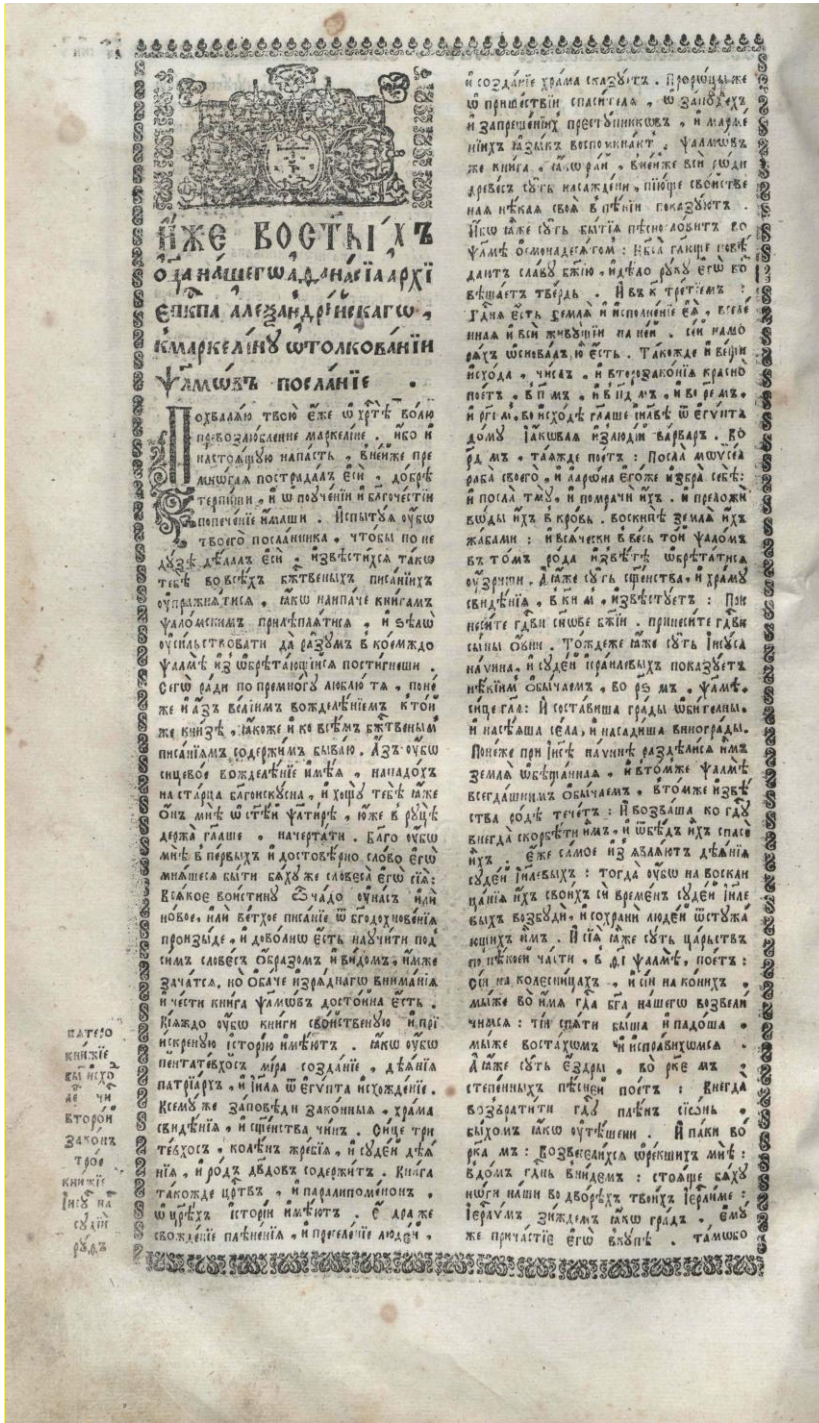 И҆́ЖЕ ВОСТЫ́ХЪ
о҆ц҃а на́шегѡ а҆ѳана́сїа архі
є҆пкпа алеѯандрі́йскагѡ,
кмаркелі́нꙋ ѡ҆толкова́нїи
ѱалмѡ́въ посла́нїе .
Похвалѧ́ю твою̀ е҆́же ѡ҆ хр҇тѣ̀ во́лю
превозлю́бленне маркелі́не . и҆́бо и҆
настоѧ́щꙋю напа́сть , вне́йже пре
мнѡ́гаѧ пострада́лъ є҆сѝ , до́брѣ
терпи́ши , и҆ ѡ҆ поꙋче́нїи и҆ блгоче́стїи
попече́нїе и҆́маши . И҆спытꙋ́ѧ ᲂу҆́бѡ
твоего̀ посла́нника , что́бы по не
дꙋ́зѣ дѣ́лалъ є҆сѝ , и҆звѣсти́хсѧ та́кѡ
тебѣ̀ во всѣ́хъ бж҃твеныхъ писа́нїихъ
ᲂу҆пражнѧ́тисѧ , ꙗ҆́кѡ наипа́че кни́гамъ
ѱало́мскимъ прилѣплѧ́тисѧ , и҆ ѕѣлѡ̀
ᲂу҆си́льствовати да ра́зꙋмъ в кое́мждо
ѱалмѣ̀ и҆з ѡ҆брѣта́ющїйсѧ пости́гнеши .
Сегѡ̀ ра́ди по премно́гꙋ люблю́ тѧ , поне́
же и҆ а҆́зъ вся́кимъ вожделѣ́нїемъ к то́й
же кни́зѣ , ꙗ҆́коже и҆ ко всѣ́мъ бж҃твенымъ
писа́нїамъ содержи́мъ быва́ю . А҆́зъ ᲂу҆́бѡ
сицево́е вожделѣ́нїе и҆мѣ́ѧ , нападо́хъ
на ста́рца благоискꙋ́сна , и҆ хощꙋ̀ тебѣ̀ ꙗ҆́же
ѻ҆́нъ мнѣ̀ ѡ҆ ст҃ѣ́й ѱалти́рѣ , ю҆́же в рꙋцѣ̀
держа̀ гл҃аше , начерта́ти . Бла́го ᲂу҆́бѡ
мнѣ̀ в пе́рвыхъ и҆ достовѣ́рно сло́во є҆гѡ̀
мнѧ́шесѧ бы́ти бѧ́хꙋ же словеса̀ є҆гѡ̀ сїѧ̀:
Всѧ́кое вои́стинꙋ ѽ ча́до ᲂу҆на́съ и҆лѝ
но́вое, и҆лѝ ве́тхое писа́нїе ѿ бг҃одхнове́нїѧ
произы́де , и҆ дово́лнѡ є҆́сть наꙋчи́ти под
си́мъ слове́съ ѻ҆́бразомъ и҆ ви́домъ, и҆́мже
зача́тсѧ. но ѻ҆ба́че и҆зрѧ́днагѡ внима́нїѧ
и҆ че́сти кни́га ѱалмѡ́въ досто́йна є҆́сть .
Кїѧ́ждо ᲂу҆́бѡ кни́ги сво́йственꙋю и҆ прі
и́скренꙋю і҆сто́рїю и҆мѣ́ютъ . ꙗ҆́кѡ ᲂу҆́бѡ
пентатеѵхо́съ мі́ра созда́нїе , дѣѧ́нїѧ
патрїа́рхъ , и҆ і҆и҃лѧ ѿ є҆гѵ́пта и҆схожде́нїе .
Ксемꙋ́ же за́повѣди зако́нныѧ , хра́ма
свидѣ́нїѧ , и҆ сщ҃е́нства чи́нъ . Си́це три
те́ѵхосъ , колѣ́нъ жре́бїѧ , и҆ сꙋде́й дѣѧ́
нїѧ , и҆ ро́дъ дв҃довъ содержи́тъ . Кни́га
та́кожде црствъ , и҆ паралипоме́нонъ ,
ѡ҆ црѣ́хъ і҆сто́рїи и҆мѣ́ютъ . Є҆́здра же
свожде́нїе плѣне́нїѧ , и҆ преселе́нїе люде́й ,
пѧтеро
кни́жїе
бы́ и҆схо
ле чи
второ́й
зако́нъ
трое
кни́жїе
І҆исꙋ на
сꙋдїи
рꙋ́ѳъ
и҆ созда́нїе хра́ма ска́зꙋютъ . Проро́цы же
ѡ҆ прише́ствїи спаси́телѧ , ѡ҆ за́повѣдехъ
и҆ запреще́нїихъ престꙋ́пникѡвъ , и҆
ꙗ҆зы́къ воспомина́ютъ . ѱалмѡ́въ
же кни́га , ꙗ҆́кѡ ра́й , вне́йже всѝ рѡ́ди
древе́съ сꙋ́ть насажде́ни , пїю́ще сво́йстве
наѧ нѣ́каѧ своѧ̀ в пѣ́нїи показꙋ́ютъ .
И҆́бѡ ꙗ҆́же сꙋ́ть бытїѧ̀ пѣ́сносло́витъ во
ѱалмѣ̀ ѻ҆смонадесѧ́томъ : Нб҃са̀ гл҃юще повѣ́
даютъ сла́вꙋ бж҃їю , и҆ дѣ́ло рꙋкꙋ̀ є҆гѡ̀ во
вѣща́етъ тве́рдь . И҆ въ к҃ тре́тїемъ :
Гдн҇ѧ є҆́сть землѧ̀ и҆ и҆сполне́нїе є҆ѧ̀ , вселе́
ннаѧ и҆ всѝ живꙋ́щїи на не́й . се́й на мо
рѧ́хъ ѡ҆снова́лъ ю҆̀ є҆́сть . Та́кожде и҆ ве́щи
и҆схо́да , чи́селъ , и҆ второзако́нїѧ кра́снѡ
пое́тъ , в п҃ мъ , и҆ в п҃д мъ , и҆ во р҃е мъ ,
и҆ р҃гі м , во и҆схо́дѣ гл҃аше і҆и҃лвѣ ѿ є҆гѵ́пта
до́мꙋ І҆а́кѡвлѧ и҆з люді́й ва́рваръ . Во
р҃д мъ , та́ѧжде пое́тъ : Посла̀ мѡѷсе́а
раба̀ своего̀ , и҆ а҆арѡ́на є҆го́же и҆збра̀ себѣ̀ :
и҆ посла̀ тмꙋ̀ , и҆ помрачѝ и҆̀хъ . и҆ преложѝ
вѡ́ды и҆́хъ в кро́вь . воскипѣ̀ землѧ̀ и҆́хъ
жа́бами : и҆ всѧ́чески в ве́сь то́й ѱало́мъ
въ то́мъ ро́да и҆звѣ́тѣ ѡ҆брѣта́тисѧ
ᲂу҆́зриши . А҆ ꙗ҆́же сꙋ́ть сщ҃е́нства , и҆ хра́мꙋ
свидѣ́нїѧ , в к҃и м , и҆звѣ́стꙋетъ : При
неси́те гдви сн҃ове бж҃їи . принеси́те гдви
сы́ны ѻ҆́вни . То́ждеже ꙗ҆́же сꙋ́ть І҆исꙋ́са
наѵи́на , и҆ сꙋде́й и҆сра́илевыхъ показꙋ́етъ
нѣ́киимъ ѻ҆бы́чаемъ , во р҃ѕ мъ , ѱалмѣ̀ .
си́це гл҃ѧ : И҆ соста́виша гра́ды ѡ҆би́тельны .
и҆ насѣ́ѧша се́ла , и҆ насади́ша виногра́ды .
Поне́же при І҆и҃сѣ наѵи́нѣ раздѣли́сѧ и҆́мъ
землѧ̀ ѡ҆бѣща́ннаѧ , и҆ вто́мже ѱалмѣ̀
всегда́шнимъ ѻ҆бы́чаемъ , вто́мже и҆звѣ́
ства ро́дѣ тече́тъ : И҆ воззва́ша ко гдꙋ
внегда̀ скорбѣ́ти и҆́мъ , и҆ ѿ бѣ́дъ и҆́хъ спасѐ
и҆̀хъ . Є҆́же са́мое и҆з ꙗ҆влѧ́ютъ дѣѧ́нїѧ
сꙋде́й І҆и҃левыхъ : тогда̀ ᲂу҆́бѡ на воскли
ца́нїѧ и҆́хъ свои́хъ си́ време́нъ сꙋде́й І҆и҃ле
выхъ возбꙋдѝ , и҆ сохранѝ люде́й ѿ стꙋжа́
ющихъ и҆́мъ . И҆ сїѧ̀ ꙗ҆́же сꙋ́ть ца́рьствъ
по нѣ́коей ча́сти , в ѳ҃і ѱалмѣ̀ , пое́тъ :
Сі́и на колесни́цахъ , и҆ сі́и на ко́нихъ ,
мы́же во и҆́мѧ гд҇а бг҃а на́шегѡ возвели́
чимсѧ : ті́и спѧ́ти бы́ша и҆ падо́ша ,
мы́же воста́хомъ и҆ и҆спра́вихомсѧ .
А҆ ꙗ҆́же сꙋ́ть Є҆́здры , во р҃ке мъ ,
степе́нныхъ пѣ́сней пое́тъ : Внегда̀
возврати́ти гд҇ꙋ плѣ́нъ сїѡ́нь ,
бы́хомъ ꙗ҆́кѡ ᲂу҆тѣ́шени . И҆ па́ки во
р҃ка мъ : Возвесели́хсѧ ѡ҆ ре́кшихъ мнѣ̀ :
вдо́мъ гд҇нь вни́демъ : стоѧ́ще бѧ́хꙋ
но́ги на́ши во дво́рѣхъ твои́хъ І҆ерл҃и́ме :
І҆ерл҃и́мъ зи́ждемъ ꙗ҆́кѡ гра́дъ , є҆мꙋ́
же прича́стїе є҆гѡ̀ вкꙋ́пѣ . та́мѡбо